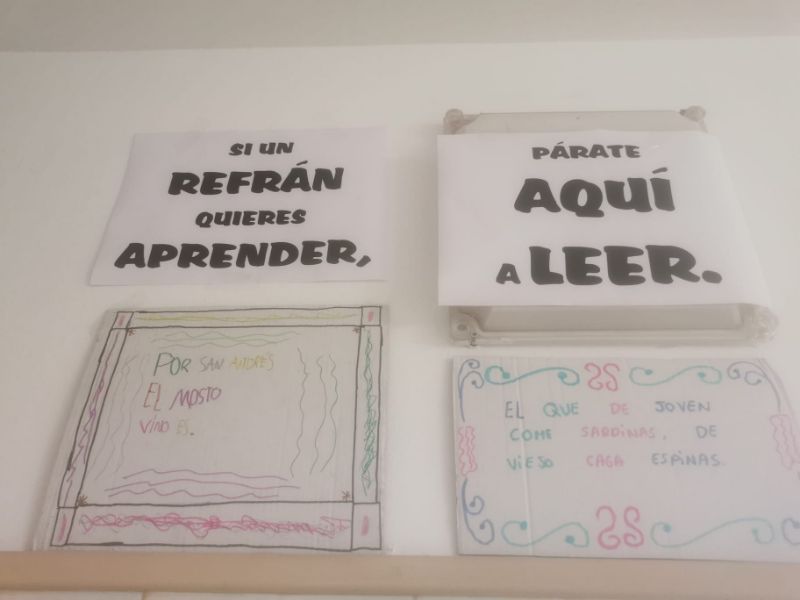 SI UN
REFRÁN
QUIERES
APRENDER,
PÁRATE
AQUÍ
A LEER.
POR SAN ANDRES
EL MOSTO
VINO ES.
EL QUE DE JOVEN
COME SARDINAS, DE
VIEJO CAGA ESPINAS.